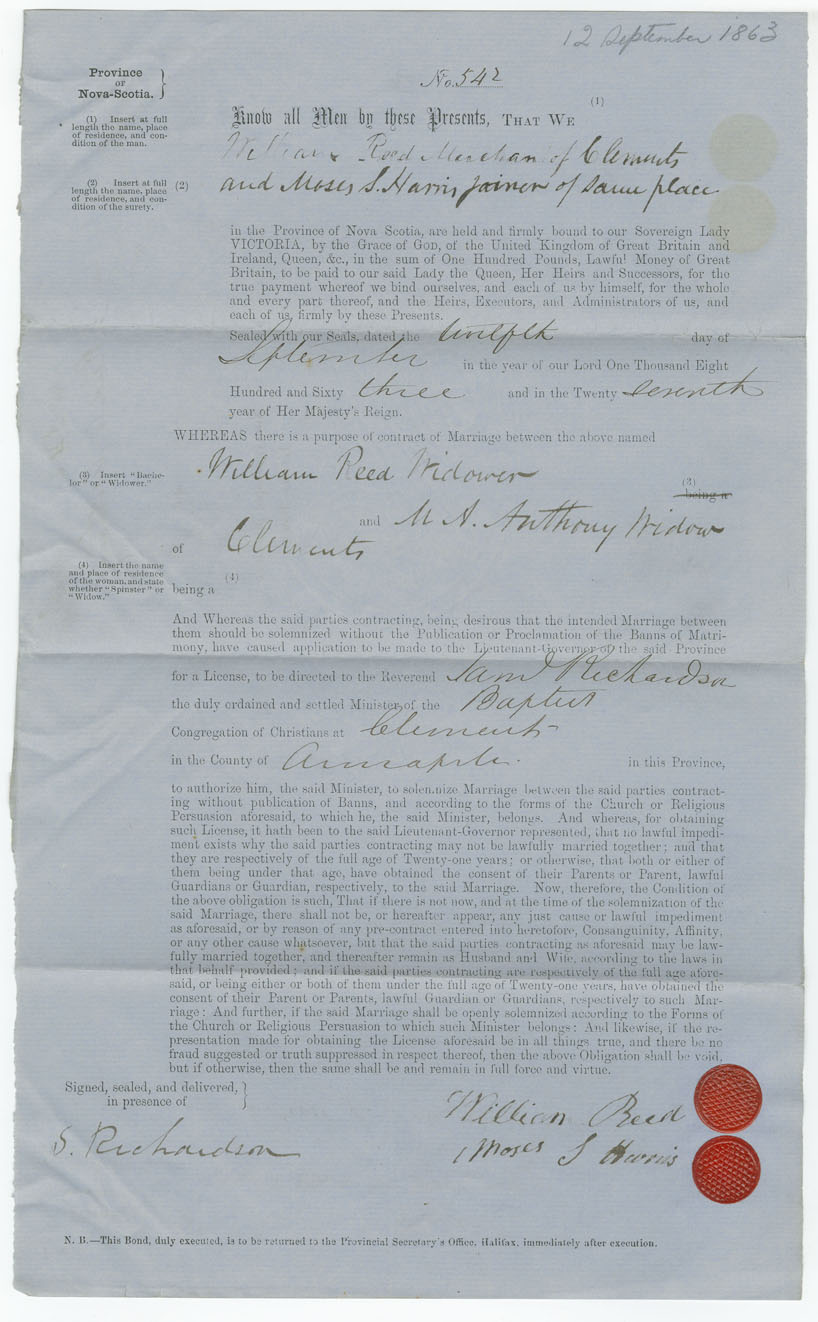 12 September 1863
Province
OF
Nova-Scotia. }
No. 542
(1) Insert at full
length the name, place
of residence, and con-
dition of the man.
(1)
Know all Men by these Presents, THAT WE
William Reed Merchan of Clements
(2) Insert at full
length the name, place
of residence, and con-
dition of the surety.
(2)
and Moses S. Harris joiner of same place
in the Province of Nova Scotia, are held and firmly bound to our Sovereign Lady
VICTORIA, by the Grace of GOD, of the United Kingdom of Great Britain and
Ireland, Queen, &c., in the sum of One Hundred Pounds, Lawful Money of Great
Britain, to be paid to our said Lady the Queen, Her Heirs and Successors, for the
true payment whereof we bind ourselves, and each of us by himself, for the whole
and every part thereof, and the Heirs, Executors, and Administrators of us, and
each of us, firmly by these Presents.
Sealed with our Seals, dated the twelfth day of
September in the year of our Lord One Thousand Eight
Hundred and Sixty three and in the Twenty seventh
year of Her Majesty's Reign.
WHEREAS there is a purpose of contract of Marriage between the above named
(3) Insert "Bache-
lor" or "Widower."
William Reed Widower
(3)
being a
and M A. Anthony Widow
of Clements
(4) Insert the name
and place of residence
of the woman, and state
whether "Spinster" or
"Widow."
(4)
being a
And Whereas the said parties contracting, being desirous that the intended Marriage between
them should be solemnized without the Publication or Proclamation of the Banns of Matri-
mony, have caused application to be made to the Lieutenant-Governor of the said Province
for a License, to be directed to the Reverend Saml Richardson
the duly ordained and settled Minister of the Baptist
Congregation of Christians at Clements
in the County of Annapolis. in this Province,
to authorize him, the said Minister, to solemnize Marriage between the said parties contract-
ing without publication of Banns, and according to the forms of the Church or Religious
Persuasion aforesaid, to which he, the said Minister, belongs. And whereas, for obtaining
such License, it hath been to the said Lieutenant-Governor represented, that no lawful impedi-
ment exists why the said parties contracting may not be lawfully married together; and that
they are respectively of the full age of Twenty-one years; or otherwise, that both or either of
them being under that age, have obtained the consent of their Parents or Parent, lawful
Guardians or Guardian, respectively, to the said Marriage. Now, therefore, the Condition of
the above obligation is such, That if there is not now, and at the time of the solemnization of the
said Marriage, there shall not be, or hereafter appear, any just cause or lawful impediment
as aforesaid, or by reason of any pre-contract entered into heretofore, Consanguinity, Affinity,
or any other cause whatsoever, but that the said parties contracting as aforesaid may be law-
fully married together, and thereafter remain as Husband and Wife, according to the laws in
that behalf provided; and if the said parties contracting are respectively of the full age afore-
said, or being either or both of them under the full age of Twenty-one years, have obtained the
consent of their Parent or Parents, lawful Guardian or Guardians, respectively to such Mar-
riage: And further, if the said Marriage shall be openly solemnized according to the Forms of
the Church or Religious Persuasion to which such Minister belongs: And likewise, if the re-
presentation made for obtaining the License aforesaid be in all things true, and there be no
fraud suggested or truth suppressed in respect thereof, then the above Obligation shall be void,
but if otherwise, then the same shall be and remain in full force and virtue.
Signed, sealed, and delivered, }
in presence of
William Reed
S. Richardson
Moses S Harris
N. B.—This Bond, duly executed, is to be returned to the Provincial Secretary's Office, Halifax, immediately after execution.